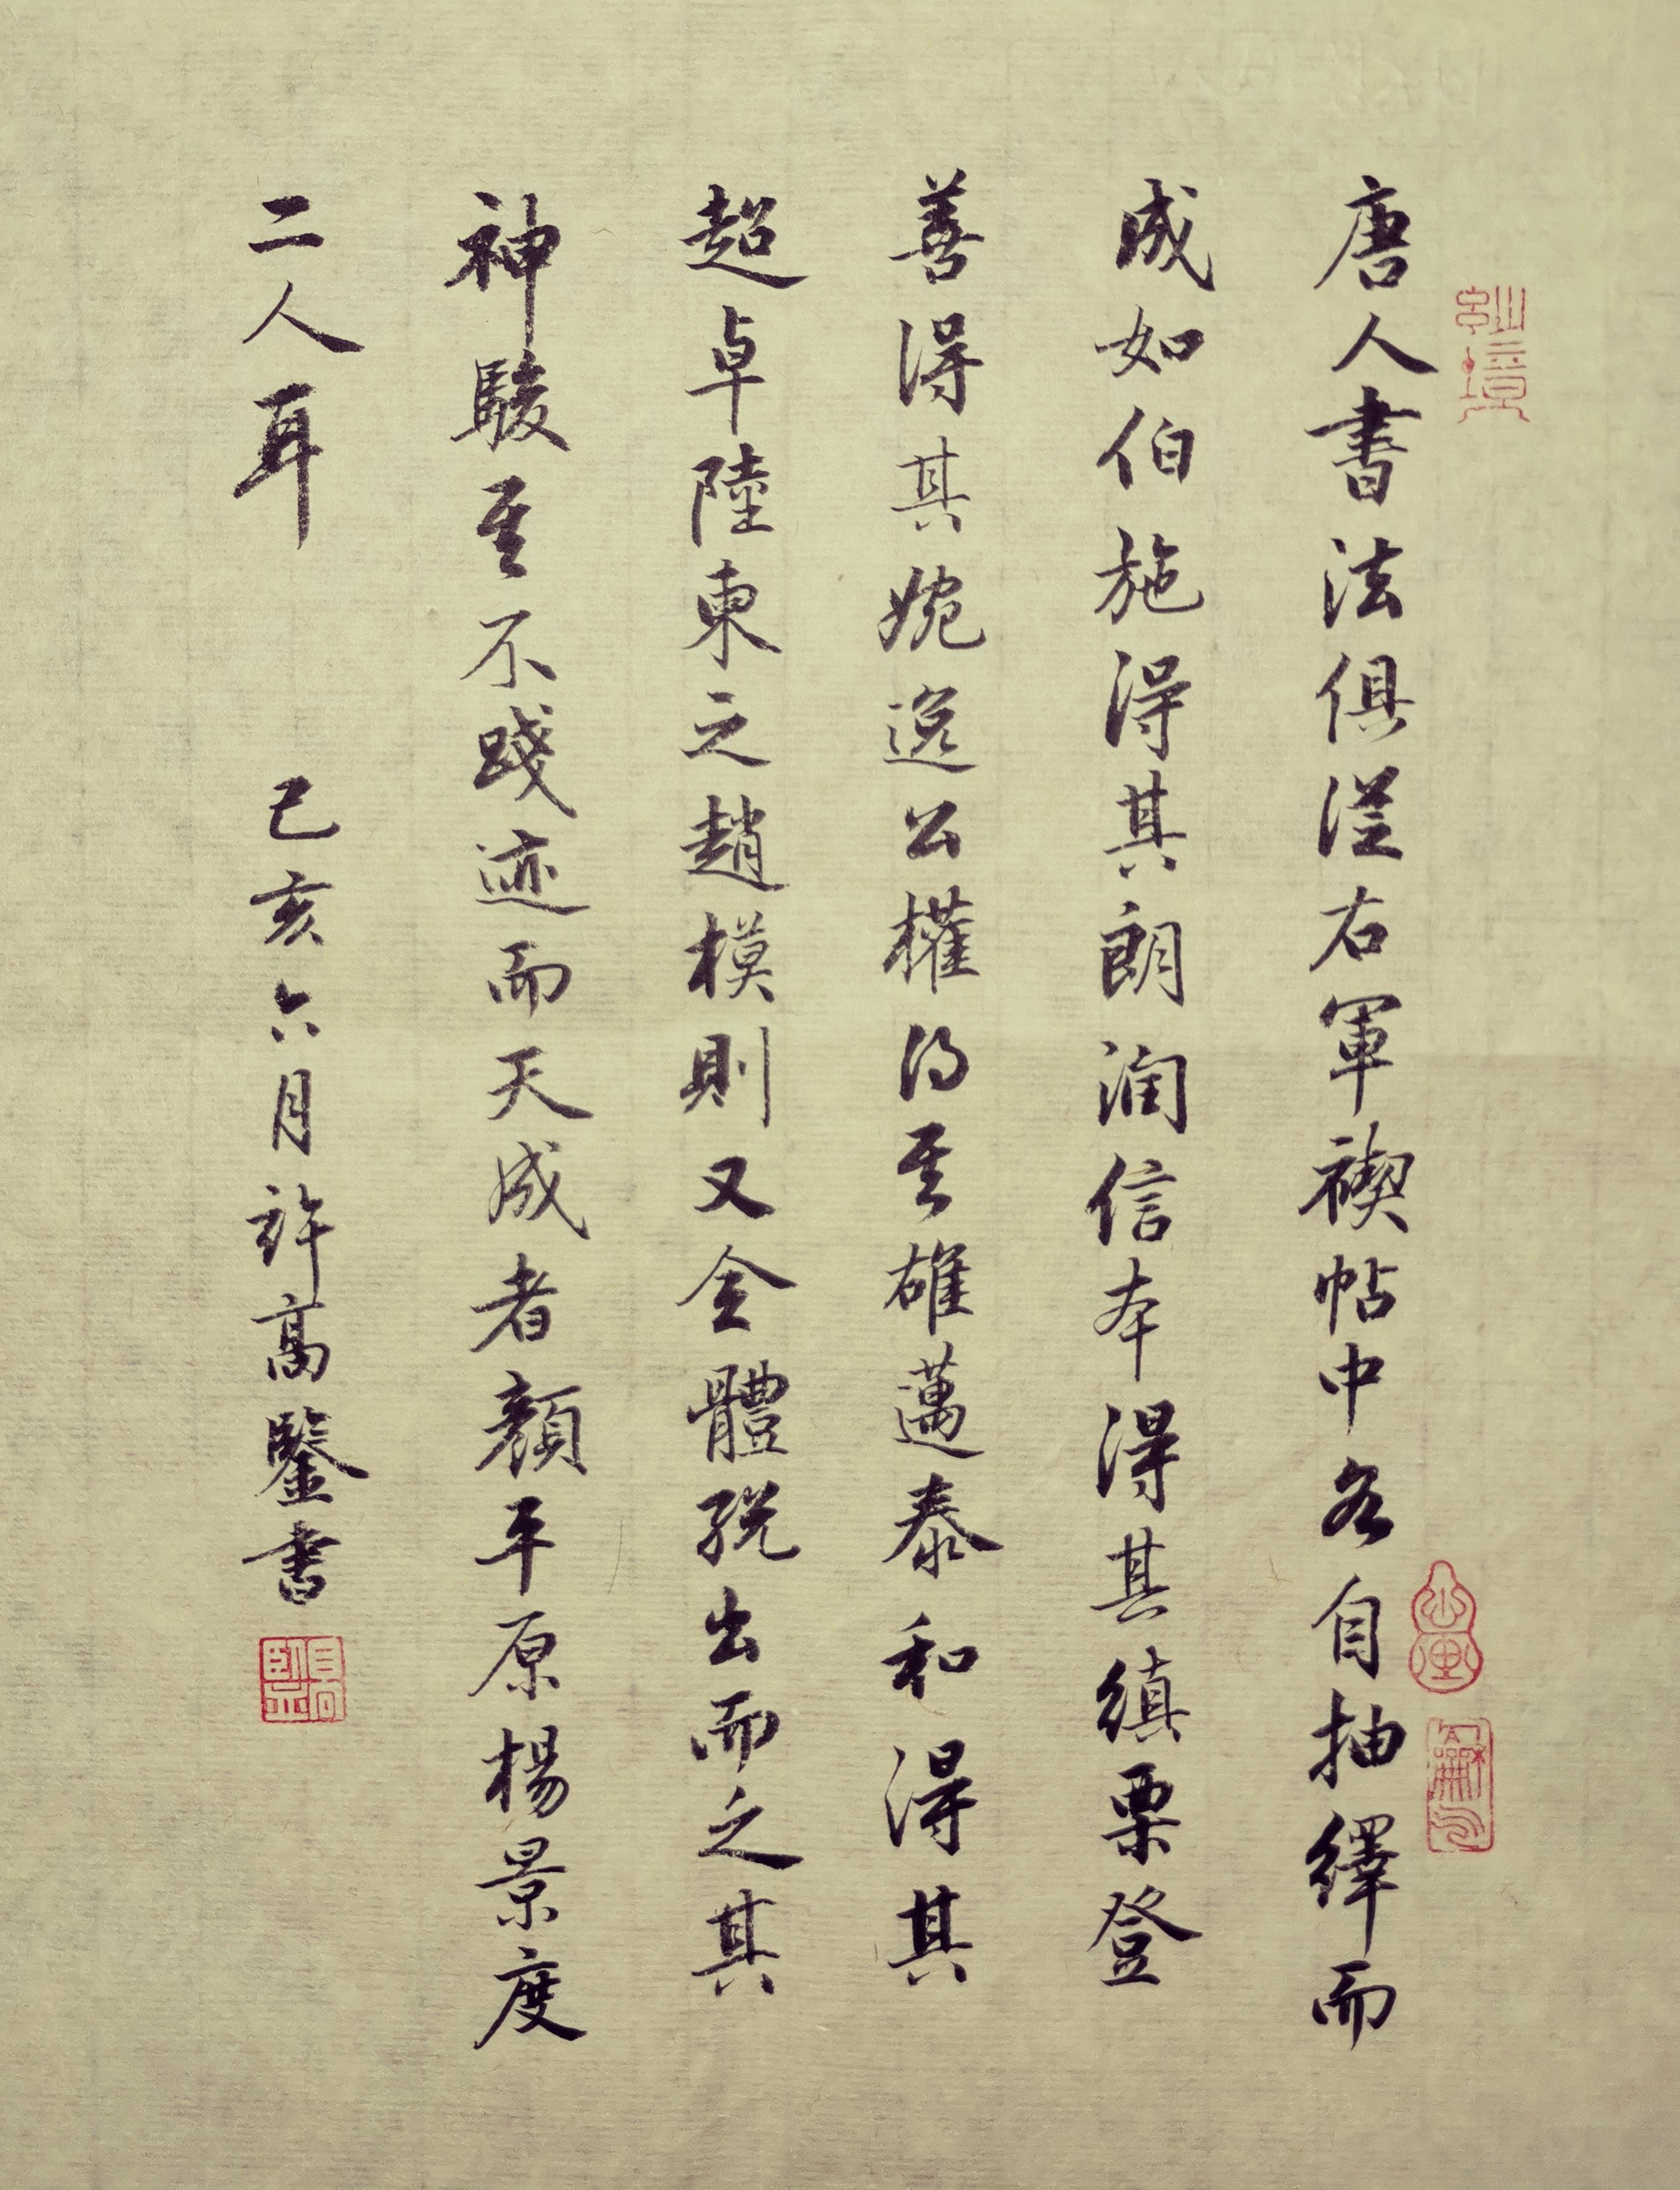 唐人書法俱從右軍禊帖中各自抽繹而
成如伯施得其朗潤信本得其縝栗登
善得其婉逸公權得其雄邁泰和得其
超卓陸東之趙模則又全體脫出而之其
神駿其不踐迹而天成者顏平原楊景度
二人耳
己亥六月許高鑒書